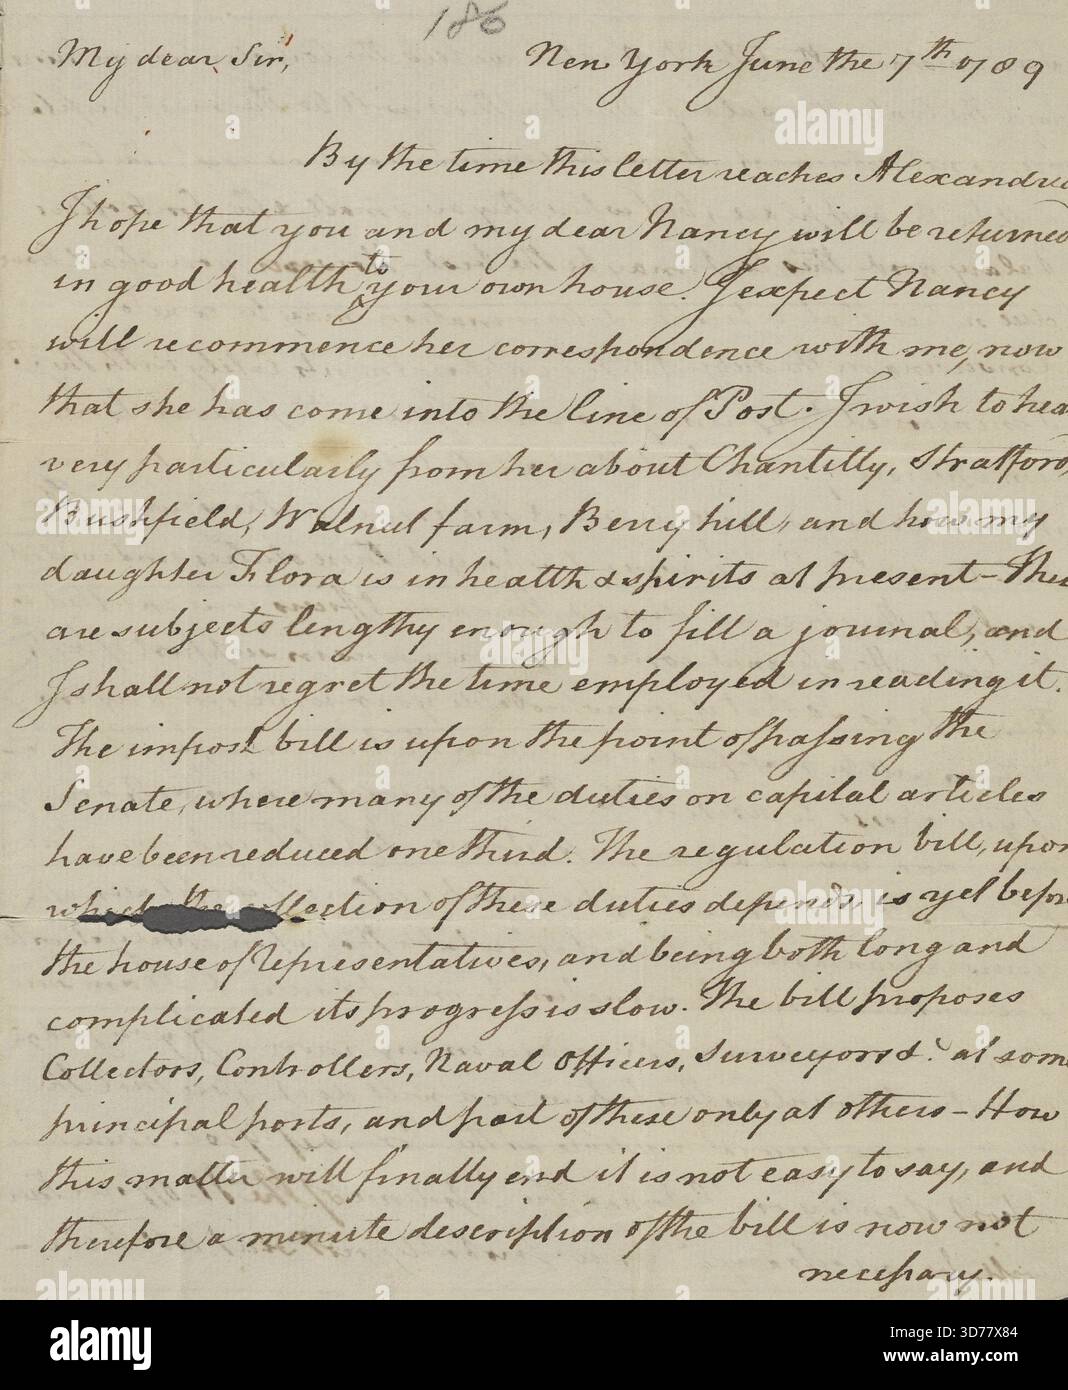 186
My dear Sir, New York June the 7th 1789
By the time this letter reaches Alexandria
I hope that you and my dear Nancy will be returned
in good health to your own house. I expect Nancy
will recommence her correspondence with me, now
that she has come into the line of Post. I wish to hear
very particularly from her about Chantilly, Stratford,
Bushfield, Walnut farm, Berry hill, and how my
daughter Flora is in health & spirits at present - These
are subjects lengthy enough to fill a journal, and
I shall not regret the time employed in reading it.
The impost bill is upon the point of passing the
Senate, where many of the duties on capital articles
have been reduced one third. The regulation bill, upon
which the collection of these duties depends, is yet before
the house of Representatives, and being both long and
complicated its progress is slow. The bill proposes
Collectors, Controllers, Naval Officers, Surveyors &c at some
principal ports, and part of these only at others - How
this matter will finally end it is not easy to say, and
therefore a minute description of the bill is now not
necessary.
alamy
Image ID: 3D77X84
www.alamy.com